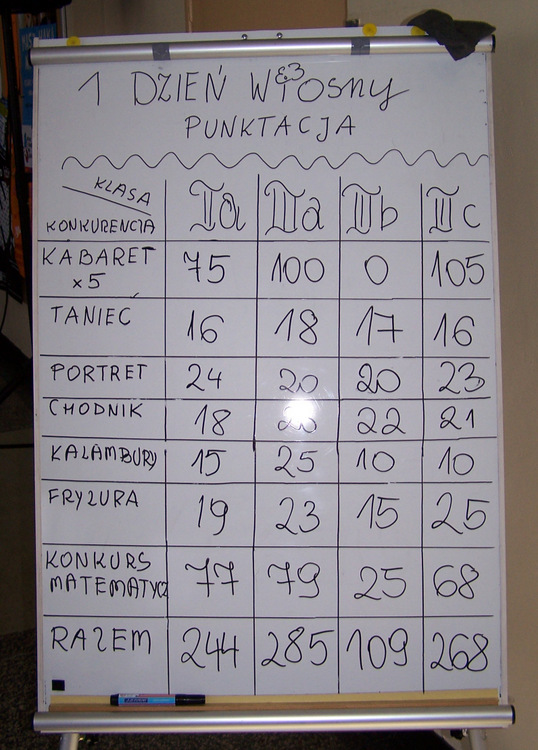 1 DZIEŃ WIOSNY
PUNKTACJA
KLASA
KONKURENCJA
IIa IIIa IIb IIc
KABARET x5 75 100 0 105
TANIEC 16 18 17 16
PORTRET 24 20 20 23
CHODNIK 18 20 22 21
KALAMBURY 15 25 10 10
FRYZURA 19 23 15 25
KONKURS MATEMATYCZ 77 79 25 68
RAZEM 244 285 109 268